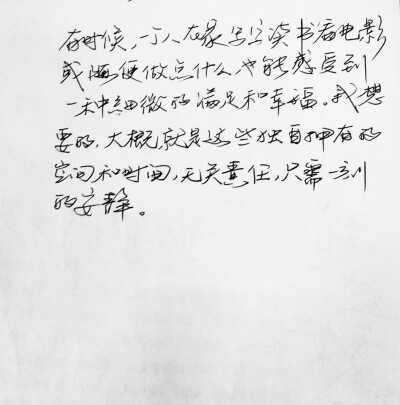 有时候,一个人在家写字读书看电影
或随便做点什么也能感受到
一种细微的满足和幸福。我想
要的,大概就是这些独自拥有的
空间和时间,无关责任,只需一刻
的安静。